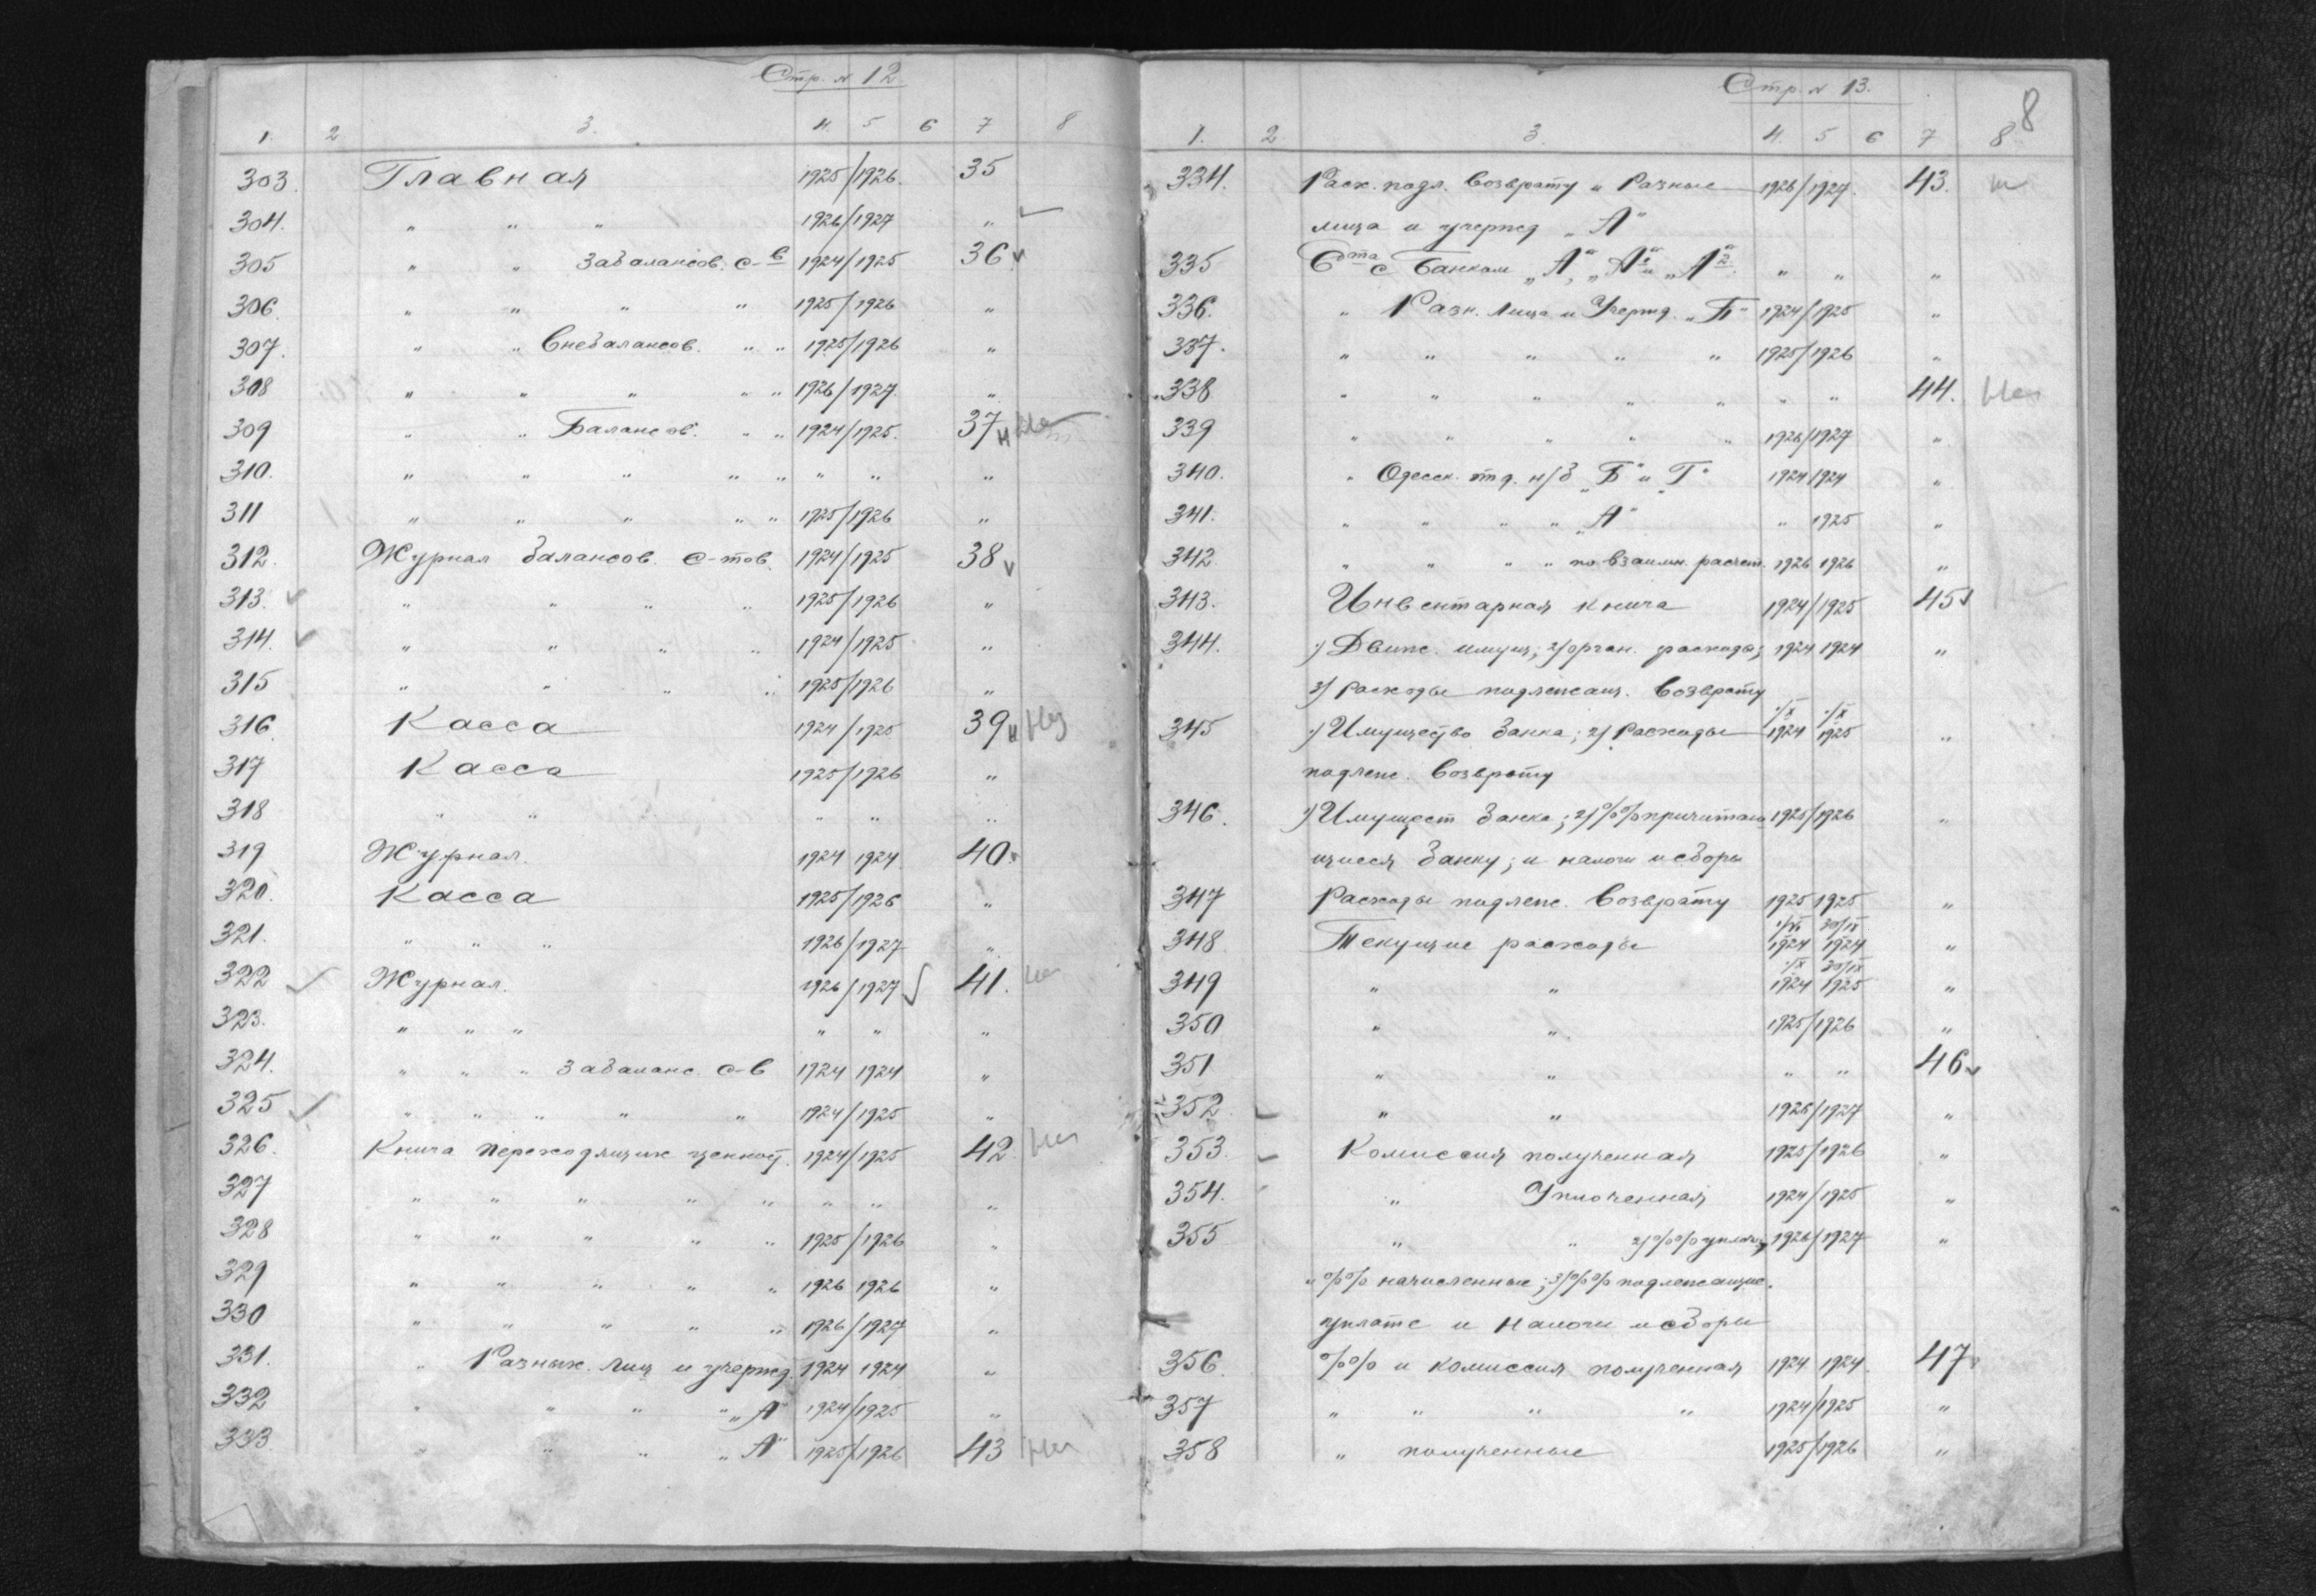 Стр. № 12.
1. 2 3. 4. 5 6 7 8
303. Главная 1925/1926. 35
304. " " " 1926/1927 "
305 " " Забалансов. с-в 1924/1925 36
306. " " " " 1925/1926 "
307. " " Внебалансов. " " 1925/1926 "
308 " " " " " 1926/1927. "
309 " " Балансов. " " 1924/1925. 37 н
310. " " " " " " " "
311 " " " " " 1925/1926 "
312. Журнал балансов. с-тов. 1924/1925 38
313. " " " " 1925/1926 "
314. " " " " 1924/1925 "
315 " " " " 1925/1926 "
316. Касса 1924/1925 39 н
317 Касса 1925/1926 "
318 " " " " "
319 Журнал. 1924 1924. 40.
320. Касса 1925/1926 "
321. " " " 1926/1927 "
322 Журнал. 1926/1927 41.
323. " " " " " "
324. " " " Забаланс. с-в 1924 1924 "
325 " " " " " 1924/1925 "
326. Книга переходящих ценност. 1924/1925 42.
327 " " " " " " " "
328 " " " " " 1925/1926 "
329 " " " " " 1926 1926 "
330 " " " " " 1926/1927 "
331. " Разных лиц и учережд. 1924 1924 "
332 " " " " „А" 1924/1925 "
333. " " " „А" 1925/1926 43
Стр. № 13.
8
1. 2. 3. 4. 5 6 7 8.
334. Расх. подл. возврату " Разные 1926/1927. 43.
лица и учережд „А"
335 С с Банком „А", „А1" и „А2" " " "
336. " Разн. лица и Учережд. „Б" 1924/1925 "
337. " " " " " 1925/1926 "
338 " " " " " " " 44.
339 " " " " " 1926/1927 "
340. " Одесск. отд. н/б „Б" и „Г" 1924 1924 "
341. " " " " „А" " 1925 "
342 " " " " по взаимн. расчет. 1926 1926 "
343. Инвентарная книга 1924/1925 45
344. 1) Движ. имущ; 2) орган. расходы; 1924 1924 "
3) расходы подлежащ. возврату
345 1) Имущество банка; 2) Расходы 1/X 1924 1/X 1925 "
подлеж. возврату
346. 1) Имущест банка; 2) %% причитаю 1925/1926 "
щиеся банку; и налоги и сборы
347 Расходы подлеж. возврату 1925 1925 "
348 Текущие расходы 1924 30/IX 1924 "
349 " " 1/X 1924 30/IX 1925 "
350 " " 1925/1926 "
351 " " " " 46
352 " " 1926/1927 "
353. Комиссия полученная 1925/1926 "
354. " Уплоченная 1924/1925 "
355 " " 2) %% уплоч; 1926/1927 "
" %% начисленные; 3) %% подлежащие.
уплате и налоги и сборы
356. %% и комиссия полученная 1924 1924. 47
357 " " " " 1924/1925 "
358 " полученные 1925/1926 "